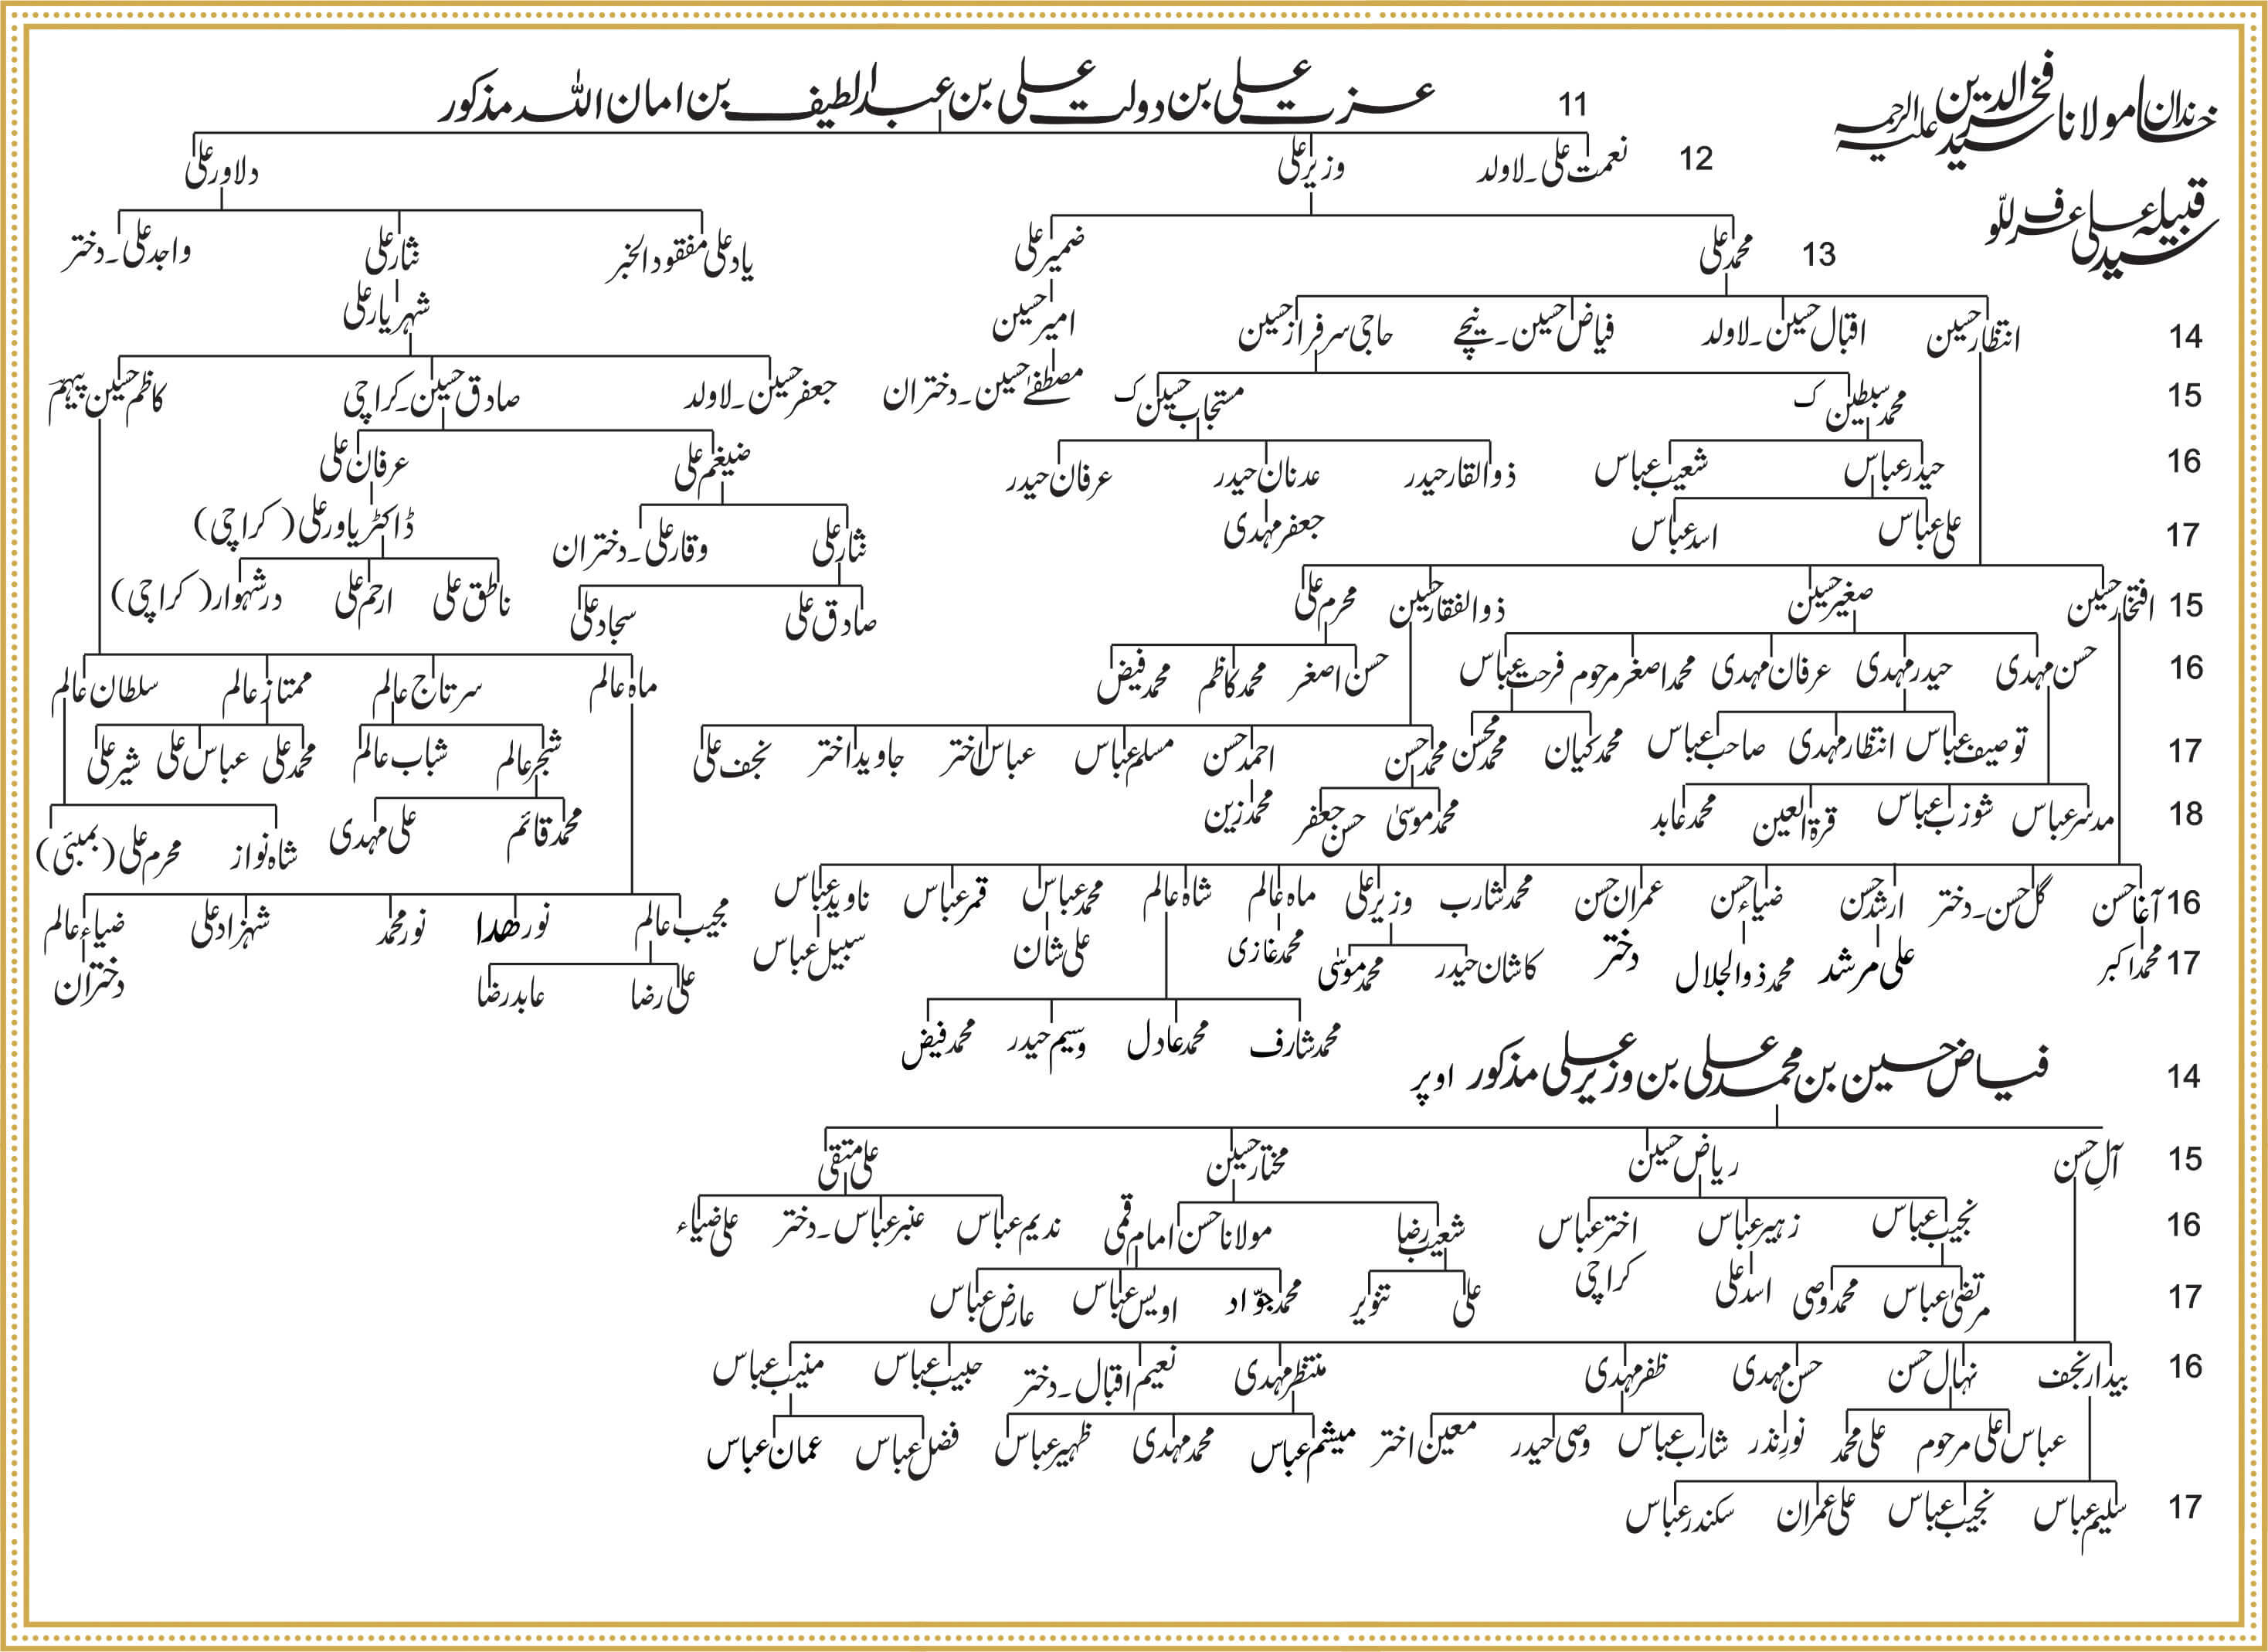 خاندان مولانا سید فخرالدین علیہ الرحمہ
قبیلہ سید علی عرف للّو
11 عزت علی بن دولت علی بن عبدالطیف بن امان اللہ مذکور
12 نعمت علی۔لاولد وزیر علی دلاور علی
13 محمد علی ضمیر علی یاد علی مفقود الخبر نثار علی واجد علی۔دختر
14 انتظار حسین اقبال حسین۔لاولد فیاض حسین۔نیچے حاجی سرفراز حسین امیر حسین شہریار علی
15 محمد سبطین ک مستجاب حسین ک مصطفےٰ حسین۔دختران جعفر حسین۔لاولد صادق حسین۔کراچی کاظم حسین
16 حیدر عباس شعیب عباس ذوالقار حیدر عدنان حیدر عرفان حیدر ضیغم علی عرفان علی
17 علی عباس اسد عباس جعفر مہدی نثار علی وقار علی۔دختران ڈاکٹر یاور علی (کراچی)
15 افتخار حسین صغیر حسین ذوالفقار حسین محرم علی صادق علی سجاد علی ناطق علی ارحم علی درشہوار (کراچی)
16 حسن مہدی حیدر مہدی عرفان مہدی محمد اصغر مرحوم فرحت عباس حسن اصغر محمد کاظم محمد فیض ماہ عالم سرتاج عالم ممتاز عالم سلطان عالم
17 توصیف عباس انتظار مہدی صاحب عباس محمد کیان محمد محسن محمد حسن احمد حسن مسلم عباس عباس اختر جاوید اختر نجف علی شجر عالم شباب عالم محمد علی عباس علی شیر علی
18 مدثر عباس شوزب عباس قرۃ العین محمد عابد محمد موسیٰ حسن جعفر محمد زین محمد قائم علی مہدی شاہ نواز محرم علی (بمبئی)
16 آغا حسن گل حسن۔دختر ارشد حسن ضیاء حسن عمران حسن محمد شارب وزیر علی ماہ عالم شاہ عالم محمد عباس قمر عباس ناوید عباس مجیب عالم نور ھدا نور محمد شہزاد علی ضیاء عالم
17 محمد اکبر علی مرشد محمد ذوالجلال دختر کاشان حیدر محمد موسیٰ محمد غازی علی شان سبیل عباس علی رضا عابد رضا دختران
محمد شارف محمد عادل وسیم حیدر محمد فیض
14 فیاض حسین بن محمد علی بن وزیر علی مذکور اوپر
15 آلِ حسن ریاض حسین مختار حسین علی متقی
16 نجیب عباس زہیر عباس اختر عباس شعیب رضا مولانا حسن امام قمی ندیم عباس عنبر عباس۔دختر علی ضیاء
17 مرتضیٰ عباس محمد وصی اسد علی کراچی علی تنویر محمد جوّاد اویس عباس عارض عباس
16 بیدار نجف نہال حسن حسن مہدی ظفر مہدی منتظر مہدی نعیم اقبال۔دختر حبیب عباس منیب عباس
عباس علی مرحوم علی محمد نور نذر شارب عباس وصی حیدر معین اختر میثم عباس محمد مہدی ظہیر عباس فضل عباس عمان عباس
17 سلیم عباس نجیب عباس علی عمران سکندر عباس